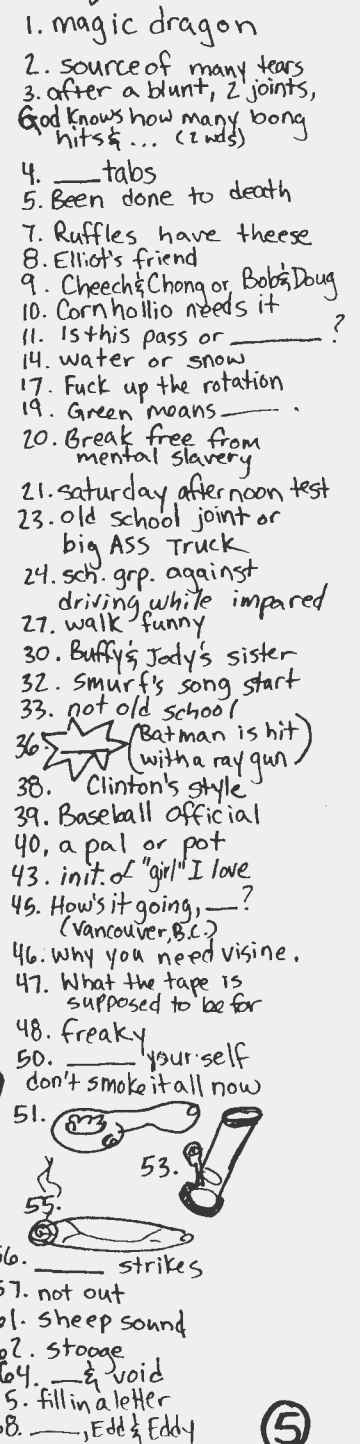 1. magic dragon
2. source of many tears
3. after a blunt, 2 joints,
God knows how many bong
hits & ... (2 wds)
4. ___ tabs
5. Been done to death
7. Ruffles have theese
8. Elliot's friend
9. Cheech & Chong or Bob & Doug
10. Cornhollio needs it
11. Is this pass or ______ ?
14. water or snow
17. Fuck up the rotation
19. Green means ____ .
20. Break free from
mental slavery
21. saturday afternoon test
23. old school joint or
big ASS Truck
24. sch. grp. against
driving while impared
27. walk funny
30. Buffy & Jody's sister
32. Smurf's song start
33. not old school
36. ____ (Batman is hit
with a ray gun)
38. Clinton's style
39. Baseball official
40. a pal or pot
43. init. of "girl" I love
45. How's it going, __?
(Vancouver, B.C.)
46. why you need visine.
47. What the tape is
supposed to be for
48. freaky
50. _____ your self
don't smoke it all now
51.
53.
55.
56. _____ strikes
57. not out
61. sheep sound
62. stooge
64. __ & void
5. fill in a letter
8. ___, Edd & Eddy
5